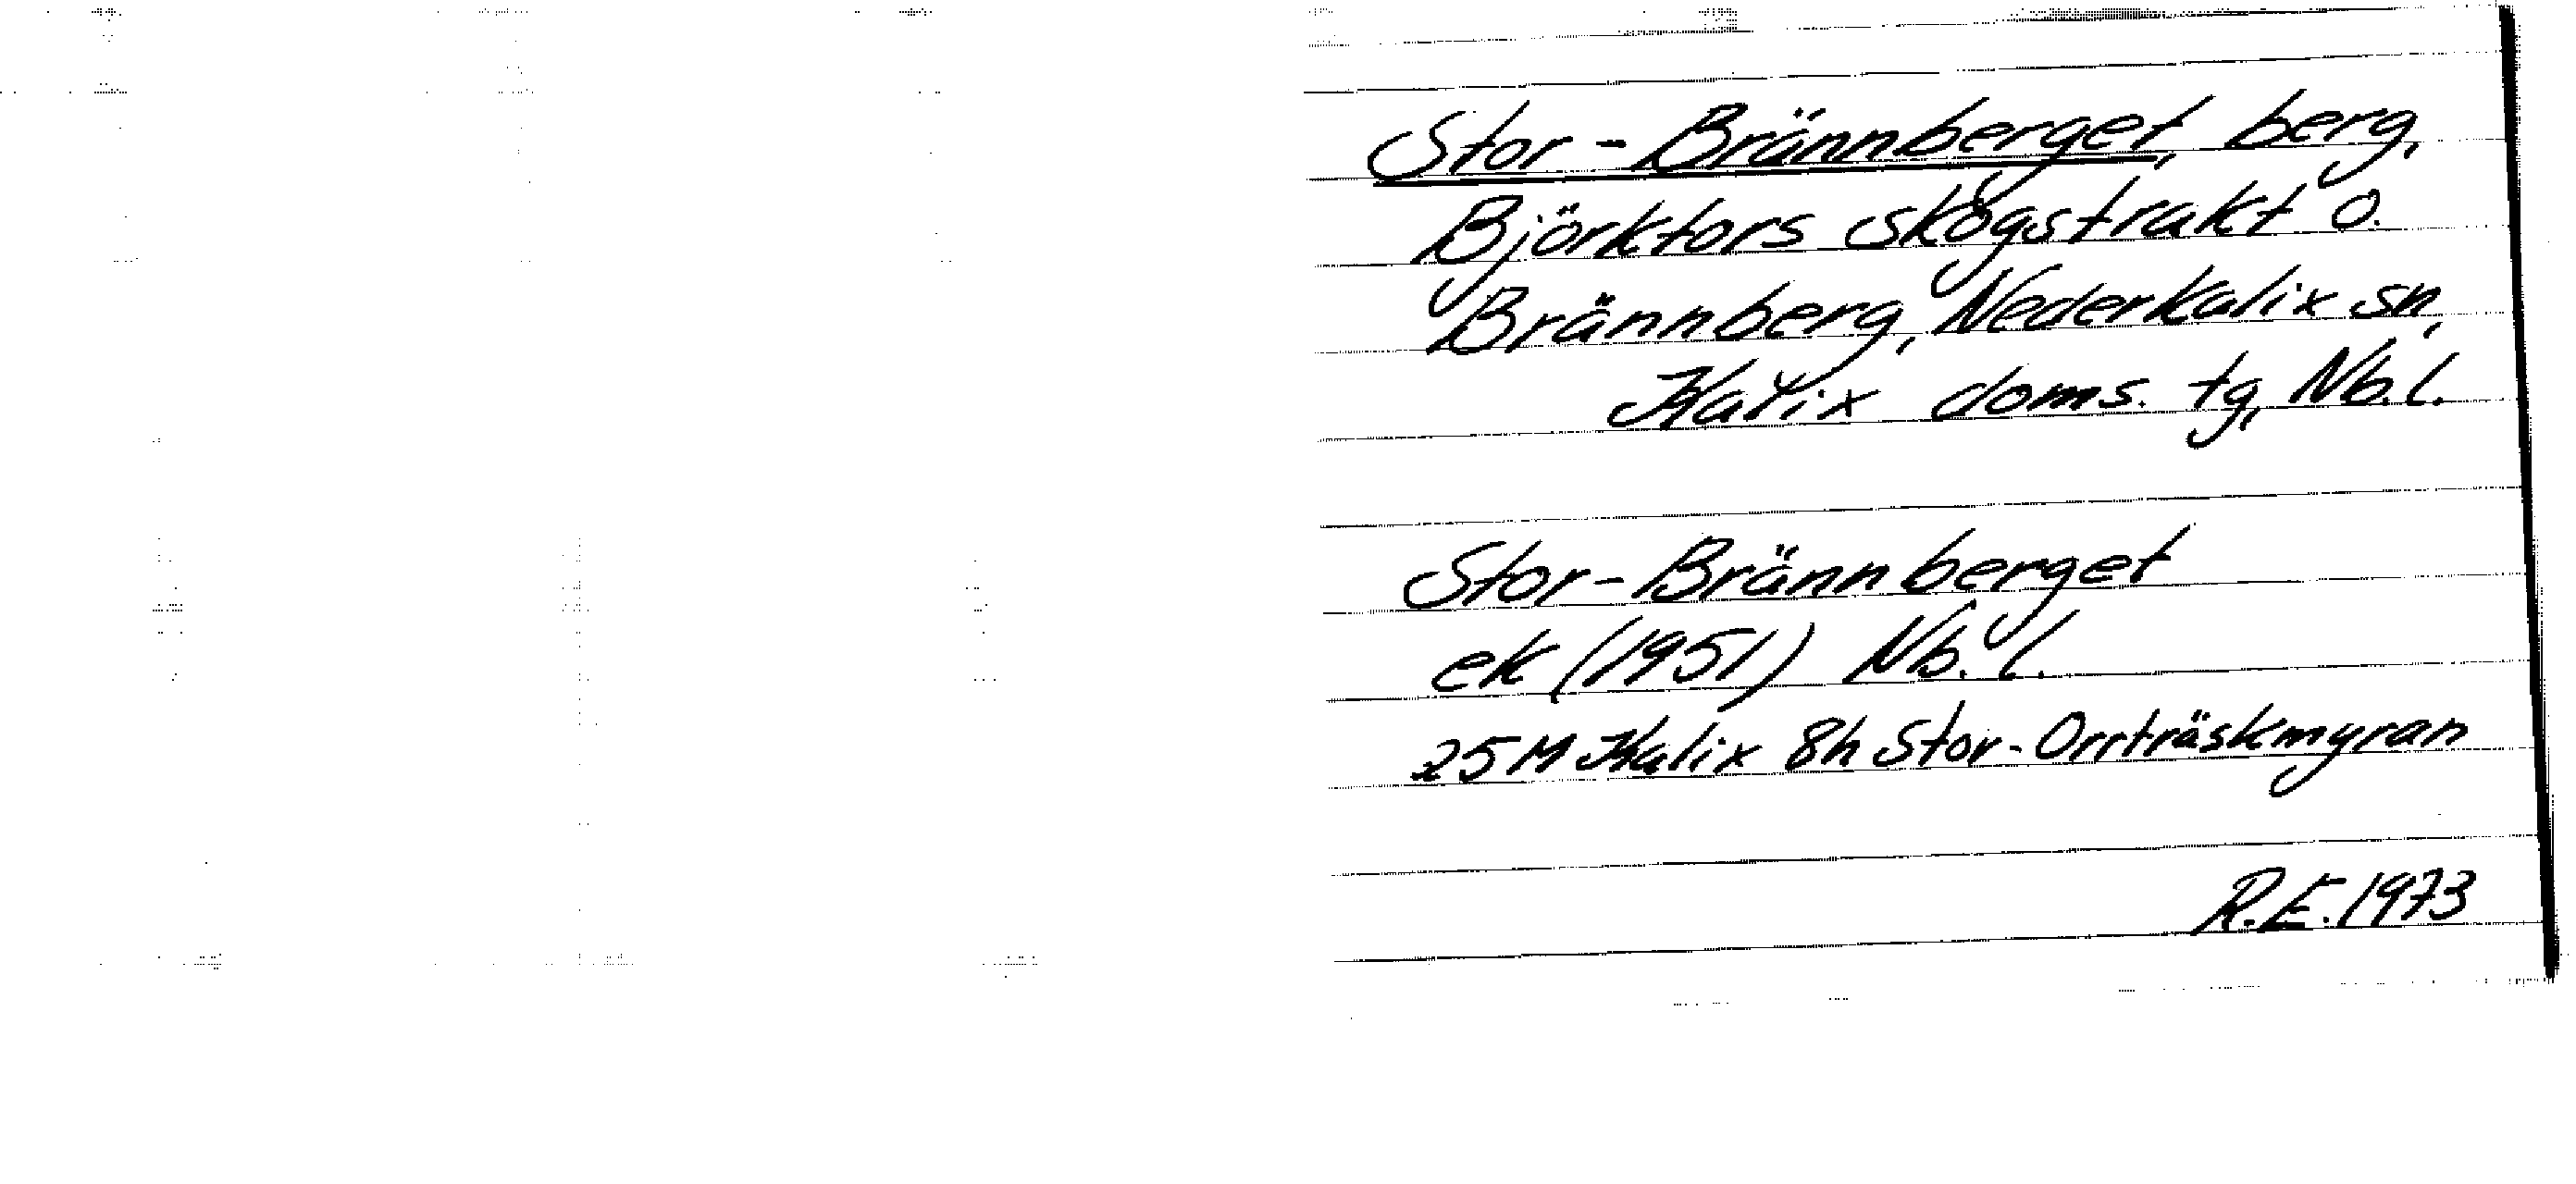 Stor-Brännberget, berg,
Björkfors skogstrakt o.
Brännberg, Nederkalix sn,
Kalix doms. tg, Nb.l.
Stor-Brännberget
ek (1951) Nb.l.
25 M Kalix 8h Stor-Orrträskmyran
R.E. 1973